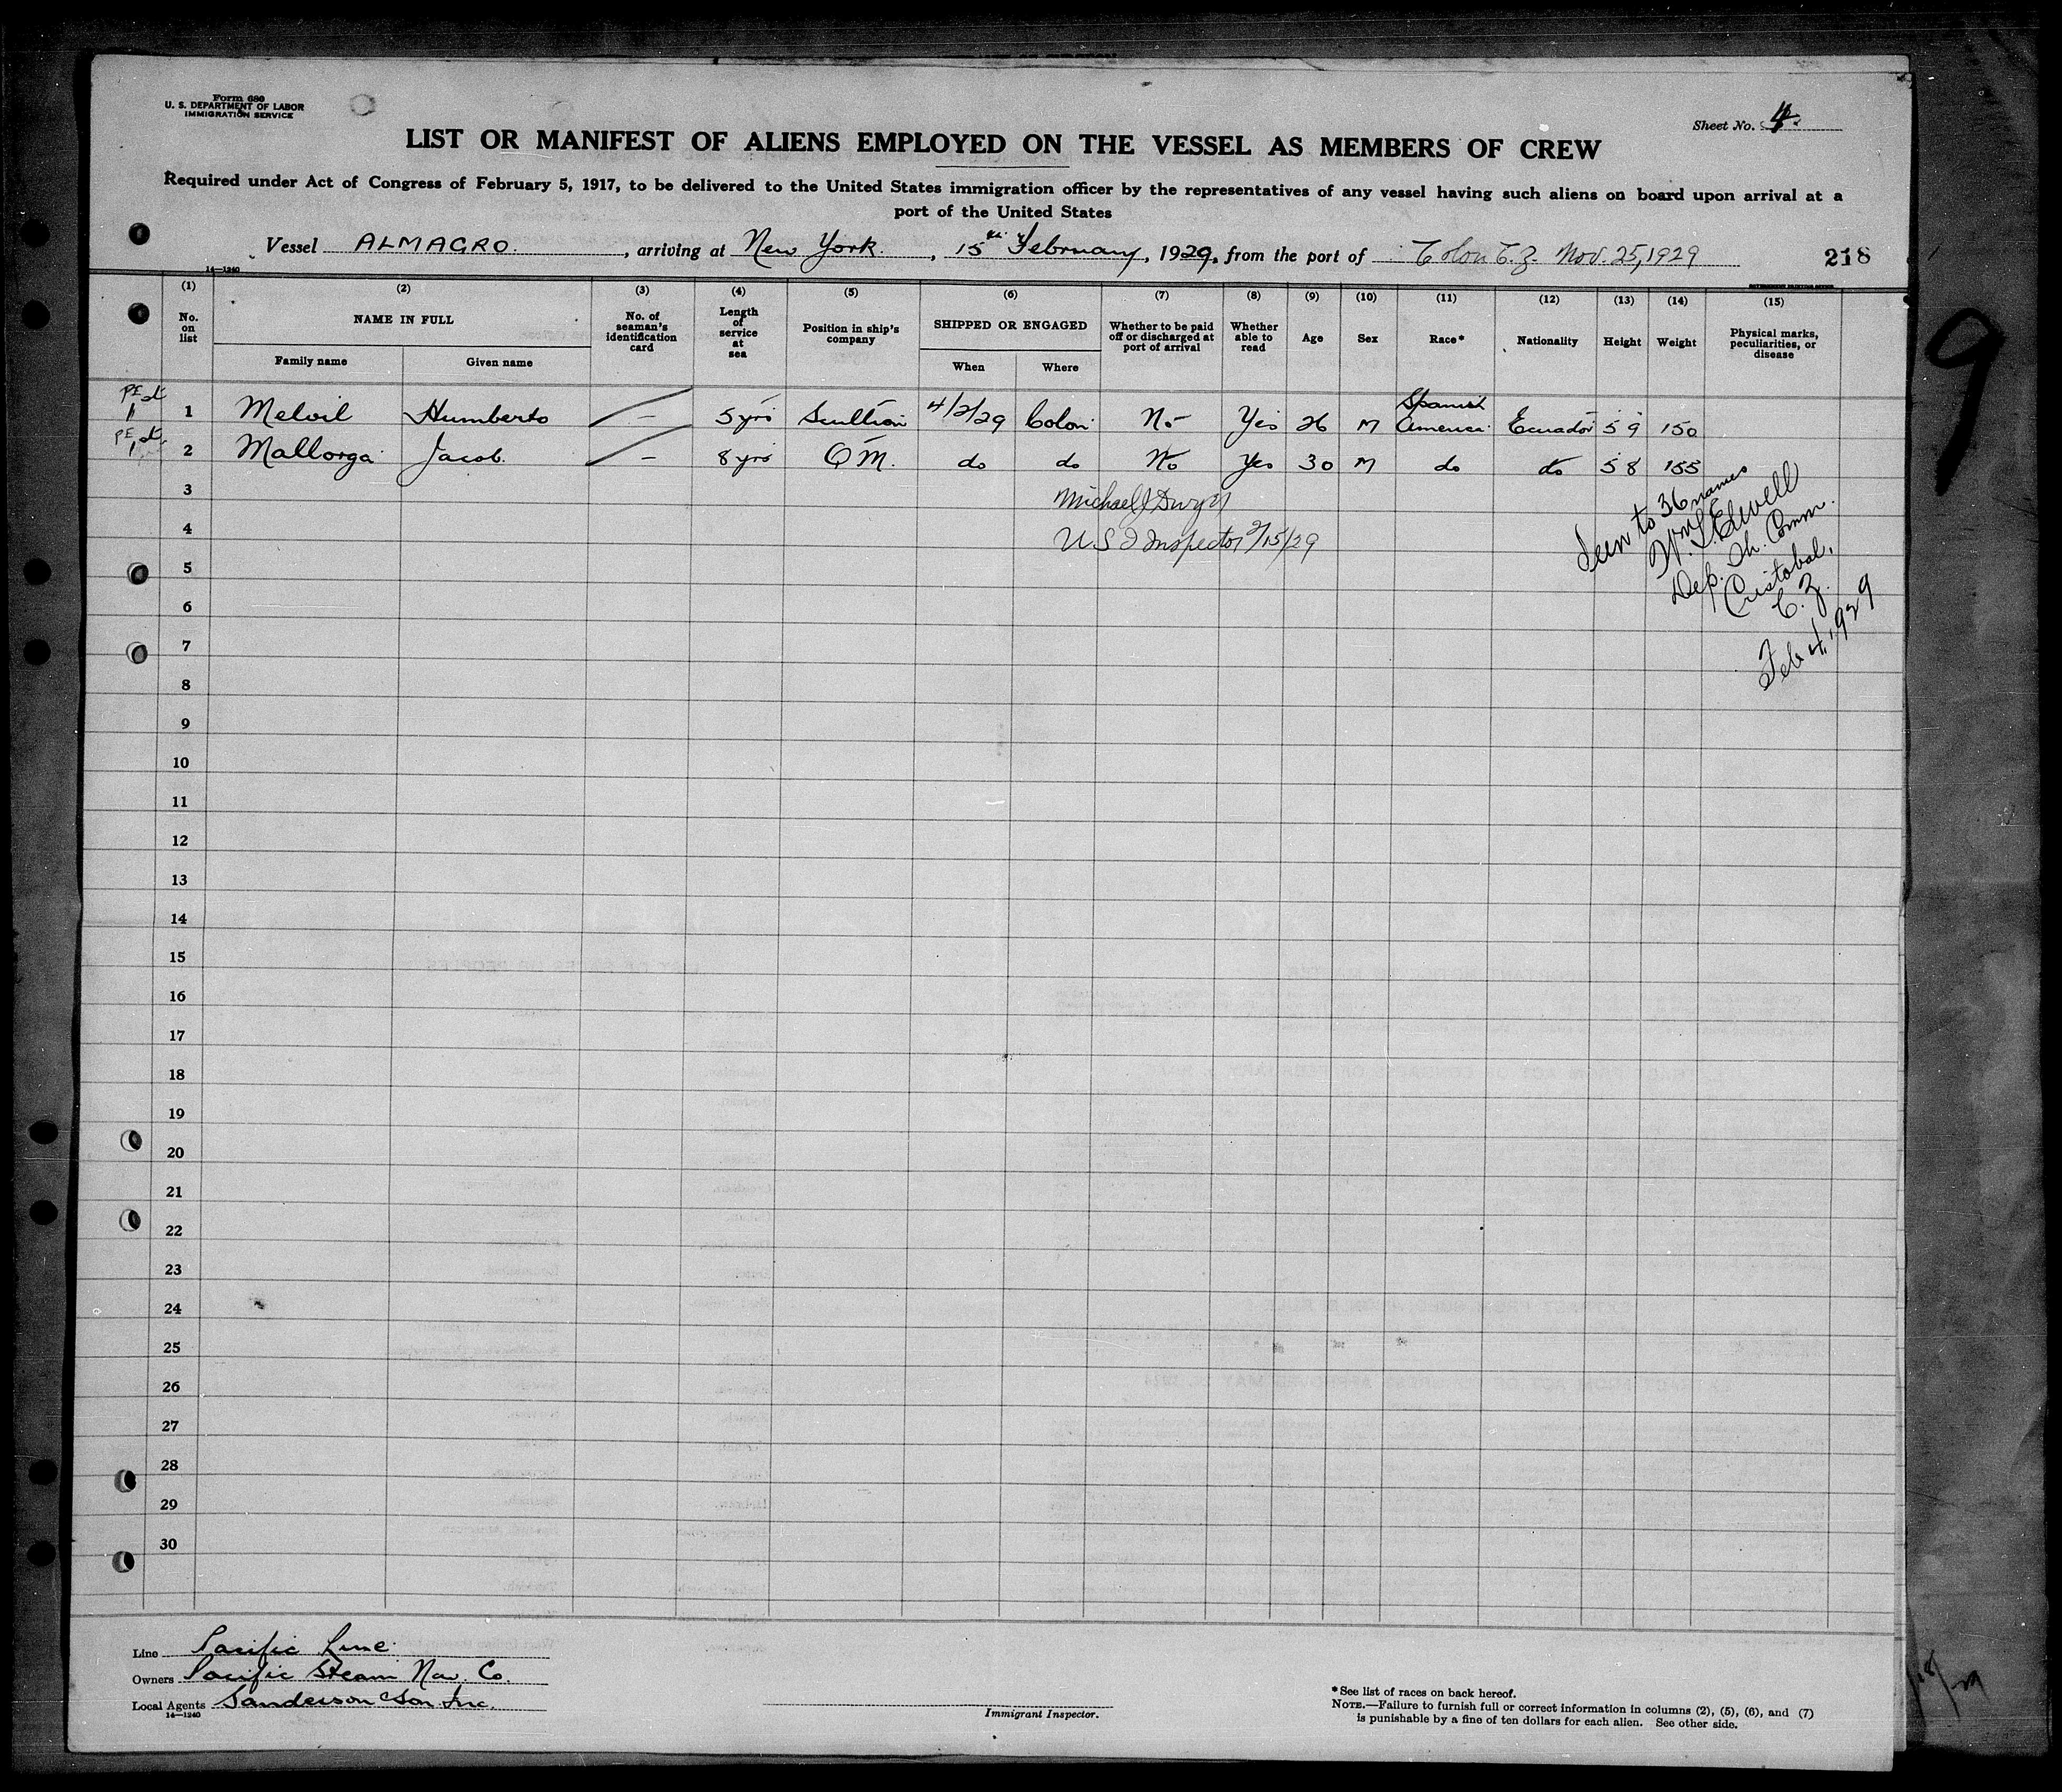 Form 680
U. S. DEPARTMENT OF LABOR
IMMIGRATION SERVICE
Sheet No. 4
LIST OR MANIFEST OF ALIENS EMPLOYED ON THE VESSEL AS MEMBERS OF CREW
Required under Act of Congress of February 5, 1917, to be delivered to the United States immigration officer by the representatives of any vessel having such aliens on board upon arrival at a
port of the United States
Vessel ALMAGRO. , arriving at New York. , 15th February, 1929, from the port of Colon C.Z. Nov. 25, 1929
218
14—1240
(1) (2) (3) (4) (5) (6) (7) (8) (9) (10) (11) (12) (13) (14) (15)
No. on list NAME IN FULL No. of seaman's identification card Length of service at sea Position in ship's company SHIPPED OR ENGAGED Whether to be paid off or discharged at port of arrival Whether able to read Age Sex Race* Nationality Height Weight Physical marks, peculiarities, or disease
Family name Given name When Where
1 Melvil Humberto — 5 yrs Scullion 4/2/29 Colon No Yes 26 M Spanish America Ecuador 5 9 150
2 Mallorga Jacob. — 8 yrs Q M. do do No Yes 30 M do do 5 8 155
3
Michael J Dwyer
4
U S I Inspector 2/15/29
Seen to 36 names
Wm. S. Elwell
Dep. Sh. Comm.
Cristobal,
C. Z.
Feb 4, 1929
5
6
7
8
9
10
11
12
13
14
15
16
17
18
19
20
21
22
23
24
25
26
27
28
29
30
9
Line Pacific Line.
Owners Pacific Steam Nav. Co.
Local Agents Sanderson & Son Inc.
14—1240
Immigrant Inspector.
*See list of races on back hereof.
NOTE.—Failure to furnish full or correct information in columns (2), (5), (6), and (7)
is punishable by a fine of ten dollars for each alien. See other side.